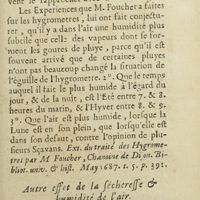 vent le rapprocher avec
Les Experiences que M. Foucher a faites
sur les hygrometres, lui ont fait conjectu-
rer, qu'il y a dans l'air une humidité plus
subtile que celle des vapeurs dont se for-
ment les goutes de pluye, parce qu'il est
souvent arrivé que de certaines pluyes
n'ont beaucoup changé la situation de
l'éguille de l'hygrometre. 2°. Que le temps
auquel il fait le plus humide à l'égard du
jour, & de la nuit, est l'Eté entre 7. & 8.
heures du matin, & l'Hyver entre 8. & 9.
3°. Que l'air est plus humide, lorsque la
Lune est en son plein, que lorsqu'elle est
dans son defaut, contre l'opinion de plu-
sieurs Sçavans. Ext. du traité des Hygrome-
tres par M Foucher, Chanoine de Dijon. Bi-
bliot. univ. & hist. May 1687. t. 5. p. 391.
Autre effet de la sécheresse &
humidité de l'air.